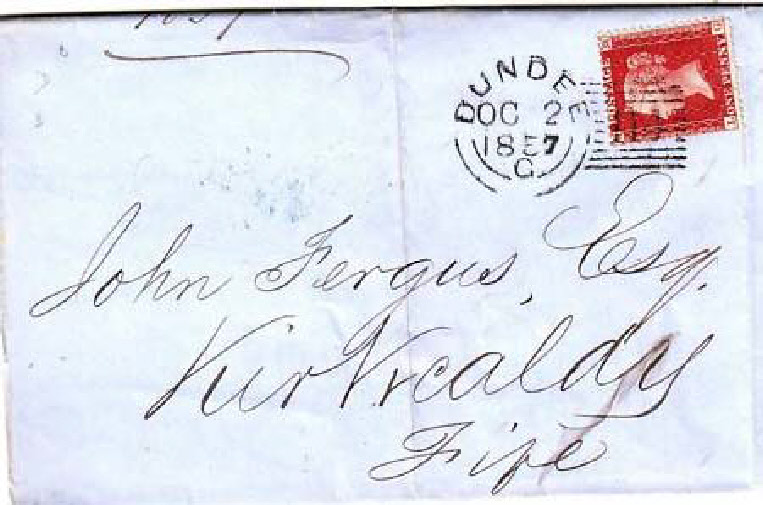 DUNDEE
OC 2
1857
C
POSTAGE
ONE PENNY
John Fergus, Esq.
Kirkcaldy
Fife